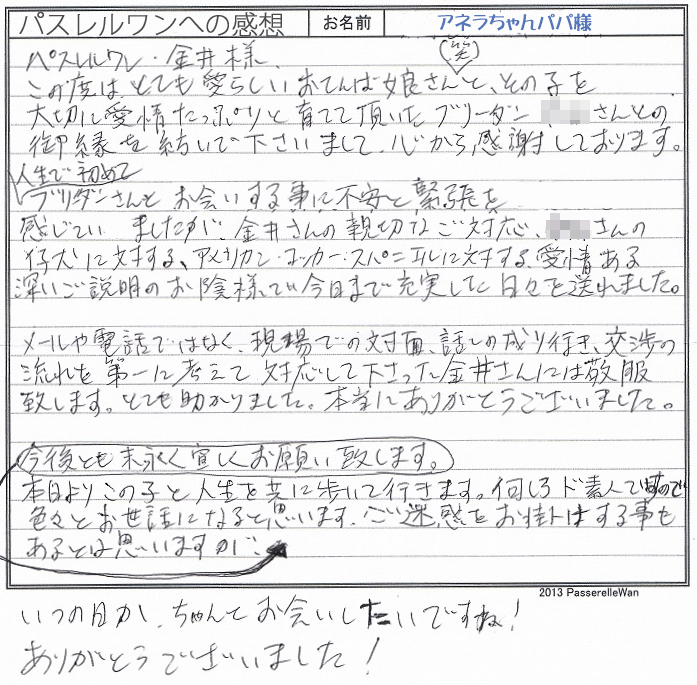 パスレルワンへの感想 お名前 アネラちゃんパパ様
パスレルワン・金井様、
(笑)
この度は、とても愛らしいおてんば娘さんと、その子を
大切に愛情たっぷりと育てて頂いたブリーダー さんとの
御縁を結いで下さいまして、心から感謝しております。
人生で初めて
ブリーダーさんとお会いする事に不安と緊張を
感じていましたが、金井さんの親切なご対応、 さんの
仔犬に対する、アメリカン・コッカー・スパニエルに対する愛情ある
深いご説明のお陰様で今日まで充実した日々を送れました。
メールや電話ではなく、現場での対面、話しの成り行き、交渉の
流れを第一に考えて対応して下さった金井さんには敬服
致します。とても助かりました。本当にありがとうございました。
今後とも末永く宜しくお願い致します。
本日よりこの子と人生を共に歩いて行きます。何しろド素人ですので
色々とお世話になると思います。ご迷惑をお掛けする事も
あるとは思いますが、
2013 PasserelleWan
いつの日か、ちゃんとお会いしたいですね！
ありがとうございました！